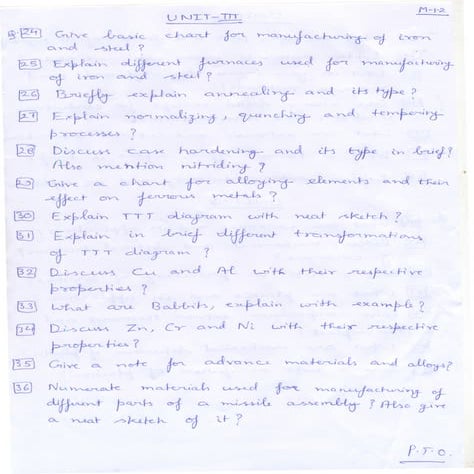 M-1.2
UNIT-III
Q.24 Give basic chart for manufacturing of iron
and steel?
25 Explain different furnaces used for manufacturing
of iron and steel?
26 Briefly explain annealing and its type?
27 Explain normalizing, quenching and tempering
processes?
28 Discuss case hardening and its type in brief?
Also mention nitriding?
29 Give a chart for alloying elements and their
effect on ferrous metals?
30 Explain TTT diagram with neat sketch?
31 Explain in brief different transformations
of TTT diagram?
32 Discuss Cu and Al with their respective
properties?
33 What are Babbits, explain with example?
34 Discuss Zn, Cr and Ni with their respective
properties?
35 Give a note for advance materials and alloys?
36 Numerate materials used for manufacturing of
different parts of a missile assembly? Also give
a neat sketch of it?
P.T.O.